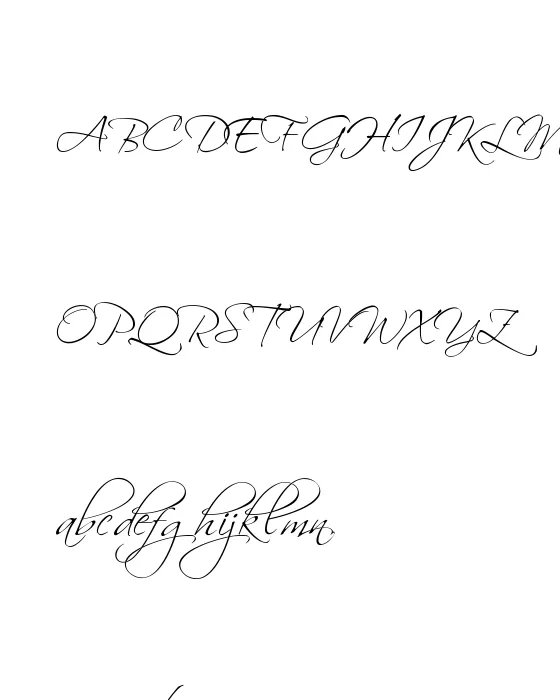 ABCDEFGHIJKLM
OPQRSTUVWXYZ
abcdefghijklmn